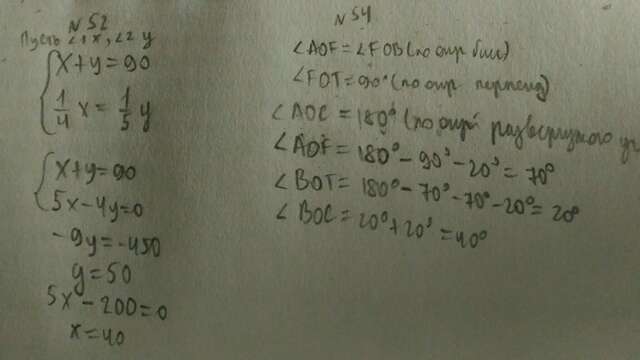 N 52
Пусть ∠1 x, ∠2 y
{ x+y=90
1/4 x = 1/5 y
{ x+y=90
5x-4y=0
-9y=-450
y=50
5x-200=0
x=40
N 54
∠AOF=∠FOB(по опр бис)
∠FOT=90°(по опр перпенд)
∠AOC=180°(по опр развернутого уг
∠AOF=180°-90°-20°=70°
∠BOT=180°-70°-70°-20°=20°
∠BOC=20°+20°=40°